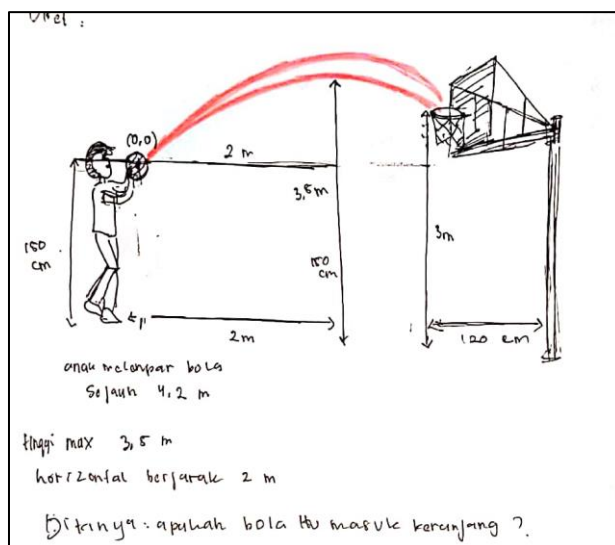 (0,0)
2 m
3,5 m
150
cm
150
cm
3m
2m
120 cm
anak melempar bola
Sejauh 4,2 m
tinggi max 3,5 m
horizontal berjarak 2 m
Ditanya : apakah bola itu masuk keranjang ?